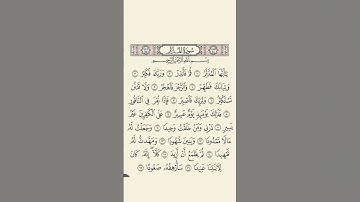 سُورَةُ المُدَّثِّر
بِسْمِ ٱللَّهِ ٱلرَّحْمَٰنِ ٱلرَّحِيمِ
يَٰٓأَيُّهَا ٱلْمُدَّثِّرُ ١ قُمْ فَأَنذِرْ ٢ وَرَبَّكَ فَكَبِّرْ ٣
وَثِيَابَكَ فَطَهِّرْ ٤ وَٱلرُّجْزَ فَٱهْجُرْ ٥ وَلَا تَمْنُن
تَسْتَكْثِرُ ٦ وَلِرَبِّكَ فَٱصْبِرْ ٧ فَإِذَا نُقِرَ فِى ٱلنَّاقُورِ
٨ فَذَٰلِكَ يَوْمَئِذٍ يَوْمٌ عَسِيرٌ ٩ عَلَى ٱلْكَٰفِرِينَ غَيْرُ
يَسِيرٍ ١٠ ذَرْنِى وَمَنْ خَلَقْتُ وَحِيدًا ١١ وَجَعَلْتُ لَهُۥ
مَالًا مَّمْدُودًا ١٢ وَبَنِينَ شُهُودًا ١٣ وَمَهَّدتُّ لَهُۥ
تَمْهِيدًا ١٤ ثُمَّ يَطْمَعُ أَنْ أَزِيدَ ١٥ كَلَّآ إِنَّهُۥ كَانَ
لِـَٔايَٰتِنَا عَنِيدًا ١٦ سَأُرْهِقُهُۥ صَعُودًا ١٧